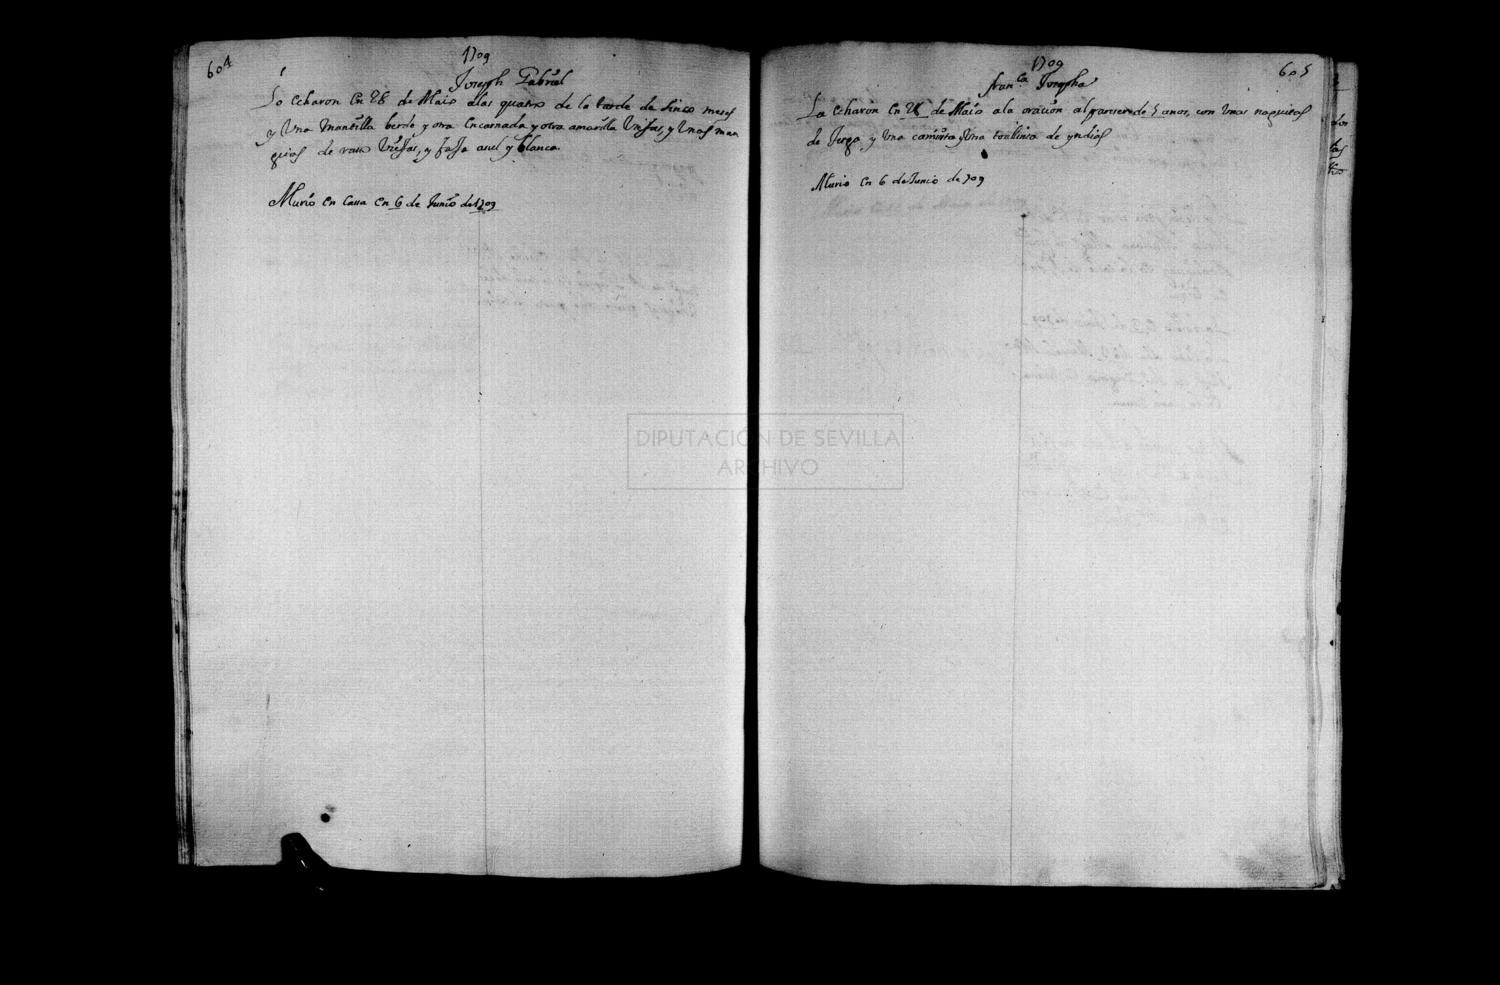 604
1709
Joseph Gabriel
Lo echaron en 28 de Maio alas quatro de la tarde de sinco meses
y Una Mantilla berde y otra encarnada y otra amarilla Viejas, y Unas man
guias de raso Viejas, y faja asul y blanca.
Murio en Cassa en 6 de Junio de 1709
605
1709
fran.ca Josepha
La echaron en 28 de Maio ala oracion al pareser de 5 anos, con Unas naguitas
de Jerga y Una camisita y Una toallita de yndias
Murio en 6 de Junio de 709
DIPUTACIÓN DE SEVILLA
ARCHIVO